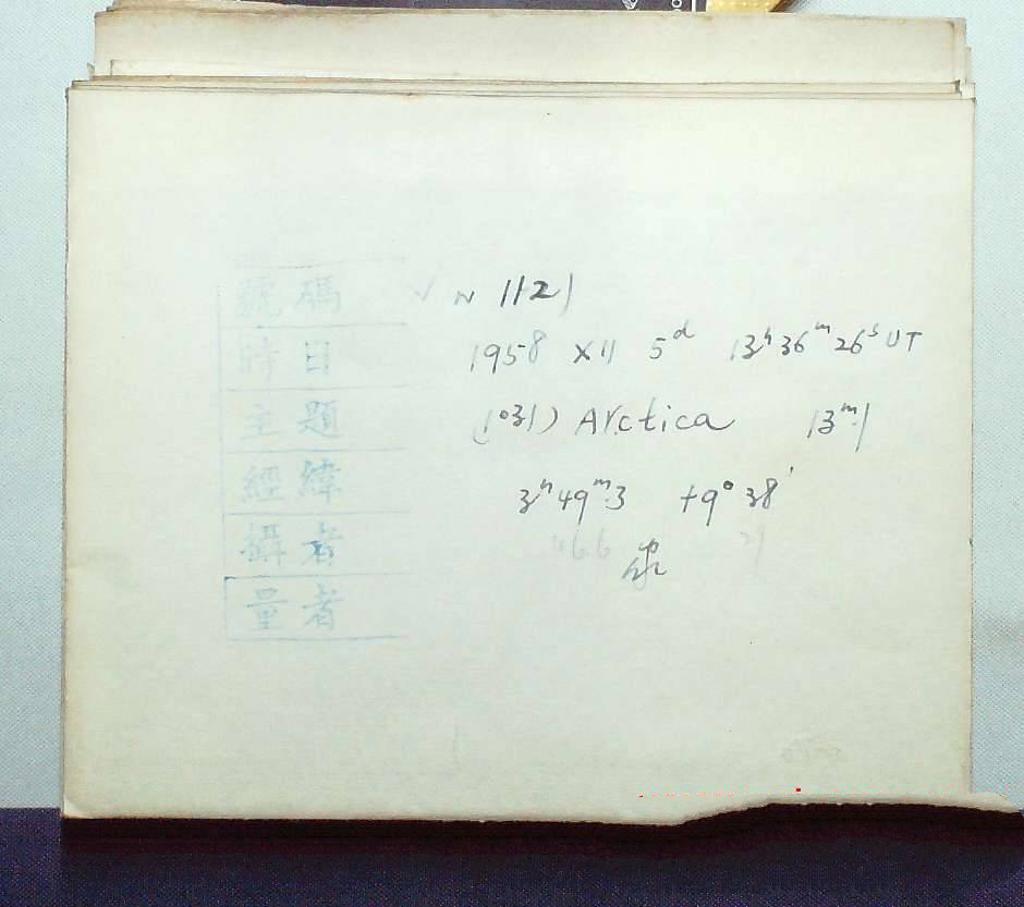 號碼 N 1121
時日 1958 XII 5ᵈ 13ʰ36ᵐ26ˢ UT
主題 (1031) Arctica 13ᵐ.1
經緯 3ʰ49ᵐ.3 +9°38'
攝者
量者